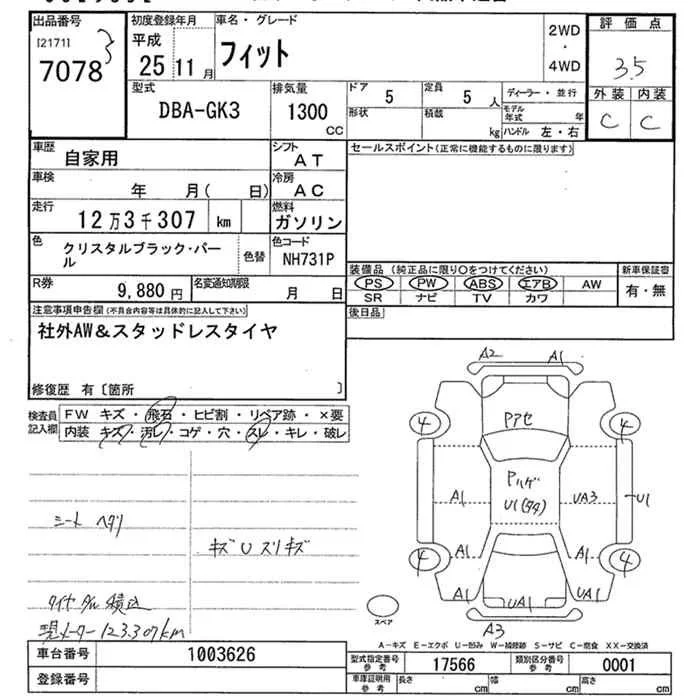 出品番号 初度登録年月 車名・グレード 2WD ・ 4WD 評価点
[2171] 7078 平成 25 11月 フィット 3.5
型式 DBA-GK3 排気量 1300 CC ドア 5 定員 5人 ディーラー・並行 外装 内装
形状 積載 kg モデル年式 年 ハンドル 左・右 C C
車歴 自家用 シフト AT セールスポイント(正常に機能するものに限ります)
車検 年 月( 日) 冷房 AC
走行 12万3千307 km 燃料 ガソリン
色 クリスタルブラック・パール 色替 色コード NH731P
装備品 (純正品に限り○をつけてください) 新車保証書
PS PW ABS エアB AW 有・無
SR ナビ TV カワ
R券 9,880円 名変通知期限 月 日
後日品
注意事項申告欄(不具合内容等は具体的に記入して下さい)
社外AW&スタッドレスタイヤ
修復歴 有〔箇所 〕
検査員記入欄 FW キズ・飛石・ヒビ割・リペア跡・×要
内装 キズ・汚レ・コゲ・穴・スレ・キレ・破レ
A2 A1
4 Pアセ 4
Pハゲ
A1 U1(タタ) UA3 U1
A1 A1
4 4
A1 UA1 UA1
A3
シート ヘタリ
キズ U スリキズ
タイヤ 積込
現メーター123.307km
スペア
A−キズ E−エクボ U−凹み W−補修跡 S−サビ C−腐食 XX−交換済
車台番号 1003626 型式指定番号 参考 17566 類別区分番号 参考 0001
登録番号 車庫証明用 参考 長さ cm 幅 cm 高さ cm